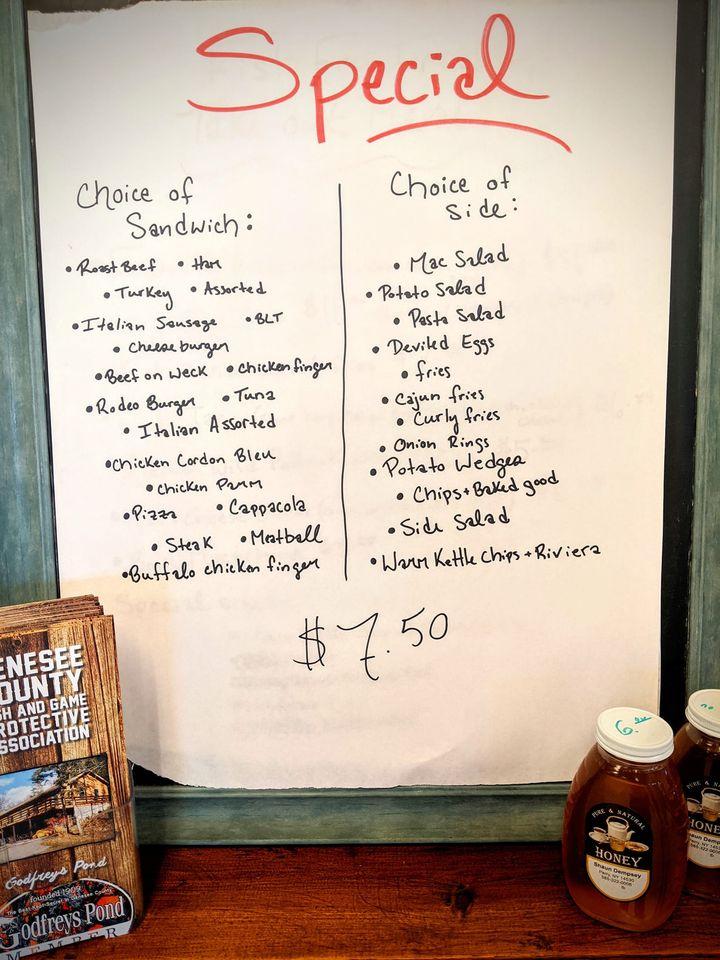 Special
Choice of
Sandwich:
• Roast Beef • Ham
• Turkey • Assorted
• Italian Sausage • BLT
• Cheeseburger
• Beef on Weck • Chicken finger
• Rodeo Burger • Tuna
• Italian Assorted
• Chicken Cordon Bleu
• Chicken Parm
• Pizza • Cappacola
• Steak • Meatball
• Buffalo chicken finger
Choice of
Side:
• Mac Salad
• Potato Salad
• Pasta Salad
• Deviled Eggs
• fries
• Cajun fries
• Curly fries
• Onion Rings
• Potato Wedges
• Chips + Baked good
• Side Salad
• Warm Kettle Chips + Riviera
$7.50
ENESEE
OUNTY
SH AND GAME
ROTECTIVE
SSOCIATION
Godfrey's Pond
founded 1909
Godfreys Pond
MEMBER
PURE & NATURAL
HONEY
Shaun Dempsey
HONE